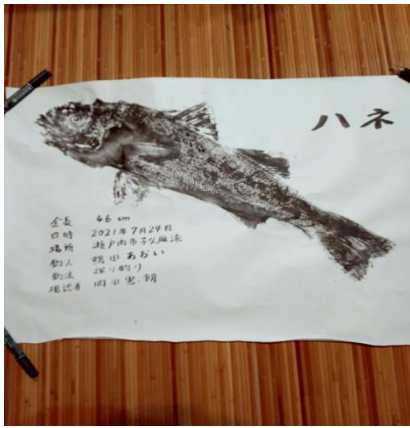 ハネ
全長 46cm
日時 2021年7月24日
場所 瀬戸内市子父雁港
釣人 あおい
釣法 探り釣り
現認者 岡田